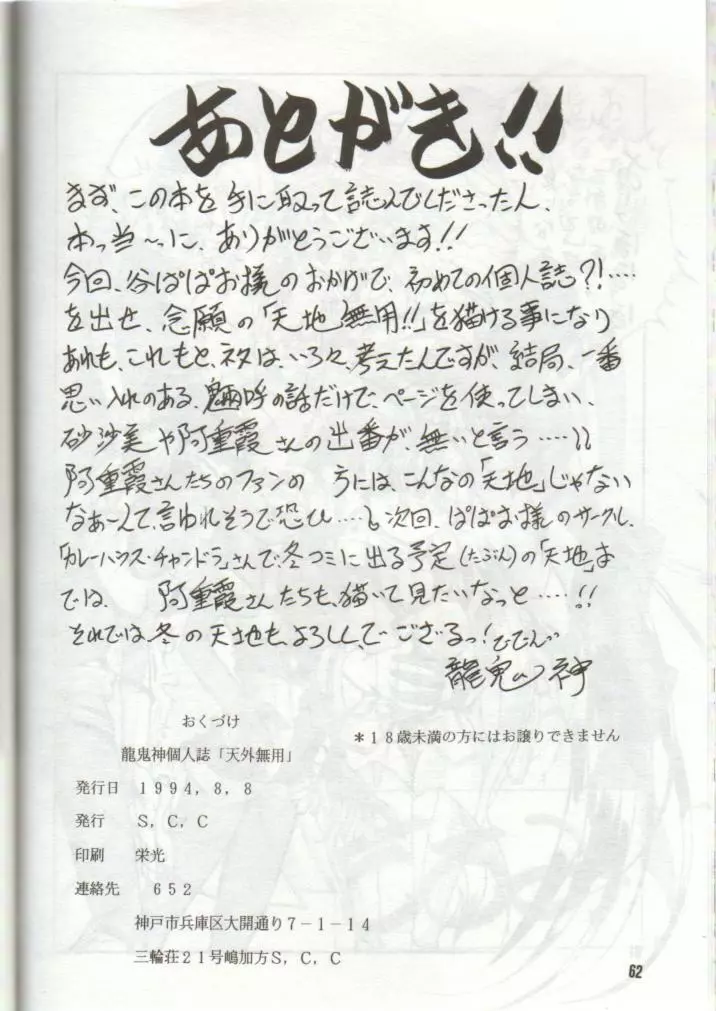 あとがき!!
まず、この本を手に取って読んでくださった人、
本っ当〜っに、ありがとうございます!!
今回、谷ぱぱお様のおかげで、初めての個人誌?!‥‥
を出せ、念願の「天地無用!!」を描ける事になり
あれも、これもと、ネタは、いろ々、考えたんですが、結局、一番
思い入れのある、魎呼の話だけで、ページを使ってしまい、
砂沙美や阿重霞さんの出番が、無いと言う‥‥
阿重霞さんたちのファンの 方には、こんなの「天地」じゃない
なぁーんて、言われそうで恐ひ‥‥ 次回、ぱぱお様のサークル、
「カレーハウス・チャンドラ」さんで、冬コミに出る予定(たぶん)の「天地」本
では、 阿重霞さんたちも、描いて見たいなっと‥‥!!
それでは冬の天地も、よろしく、でござるっ! ででん
龍鬼神
おくづけ
龍鬼神個人誌「天外無用」
＊18歳未満の方にはお譲りできません
発行日 1994,8,8
発行 S,C,C
印刷 栄光
連絡先 652
神戸市兵庫区大開通り7-1-14
三輪荘21号嶋加方S,C,C
62